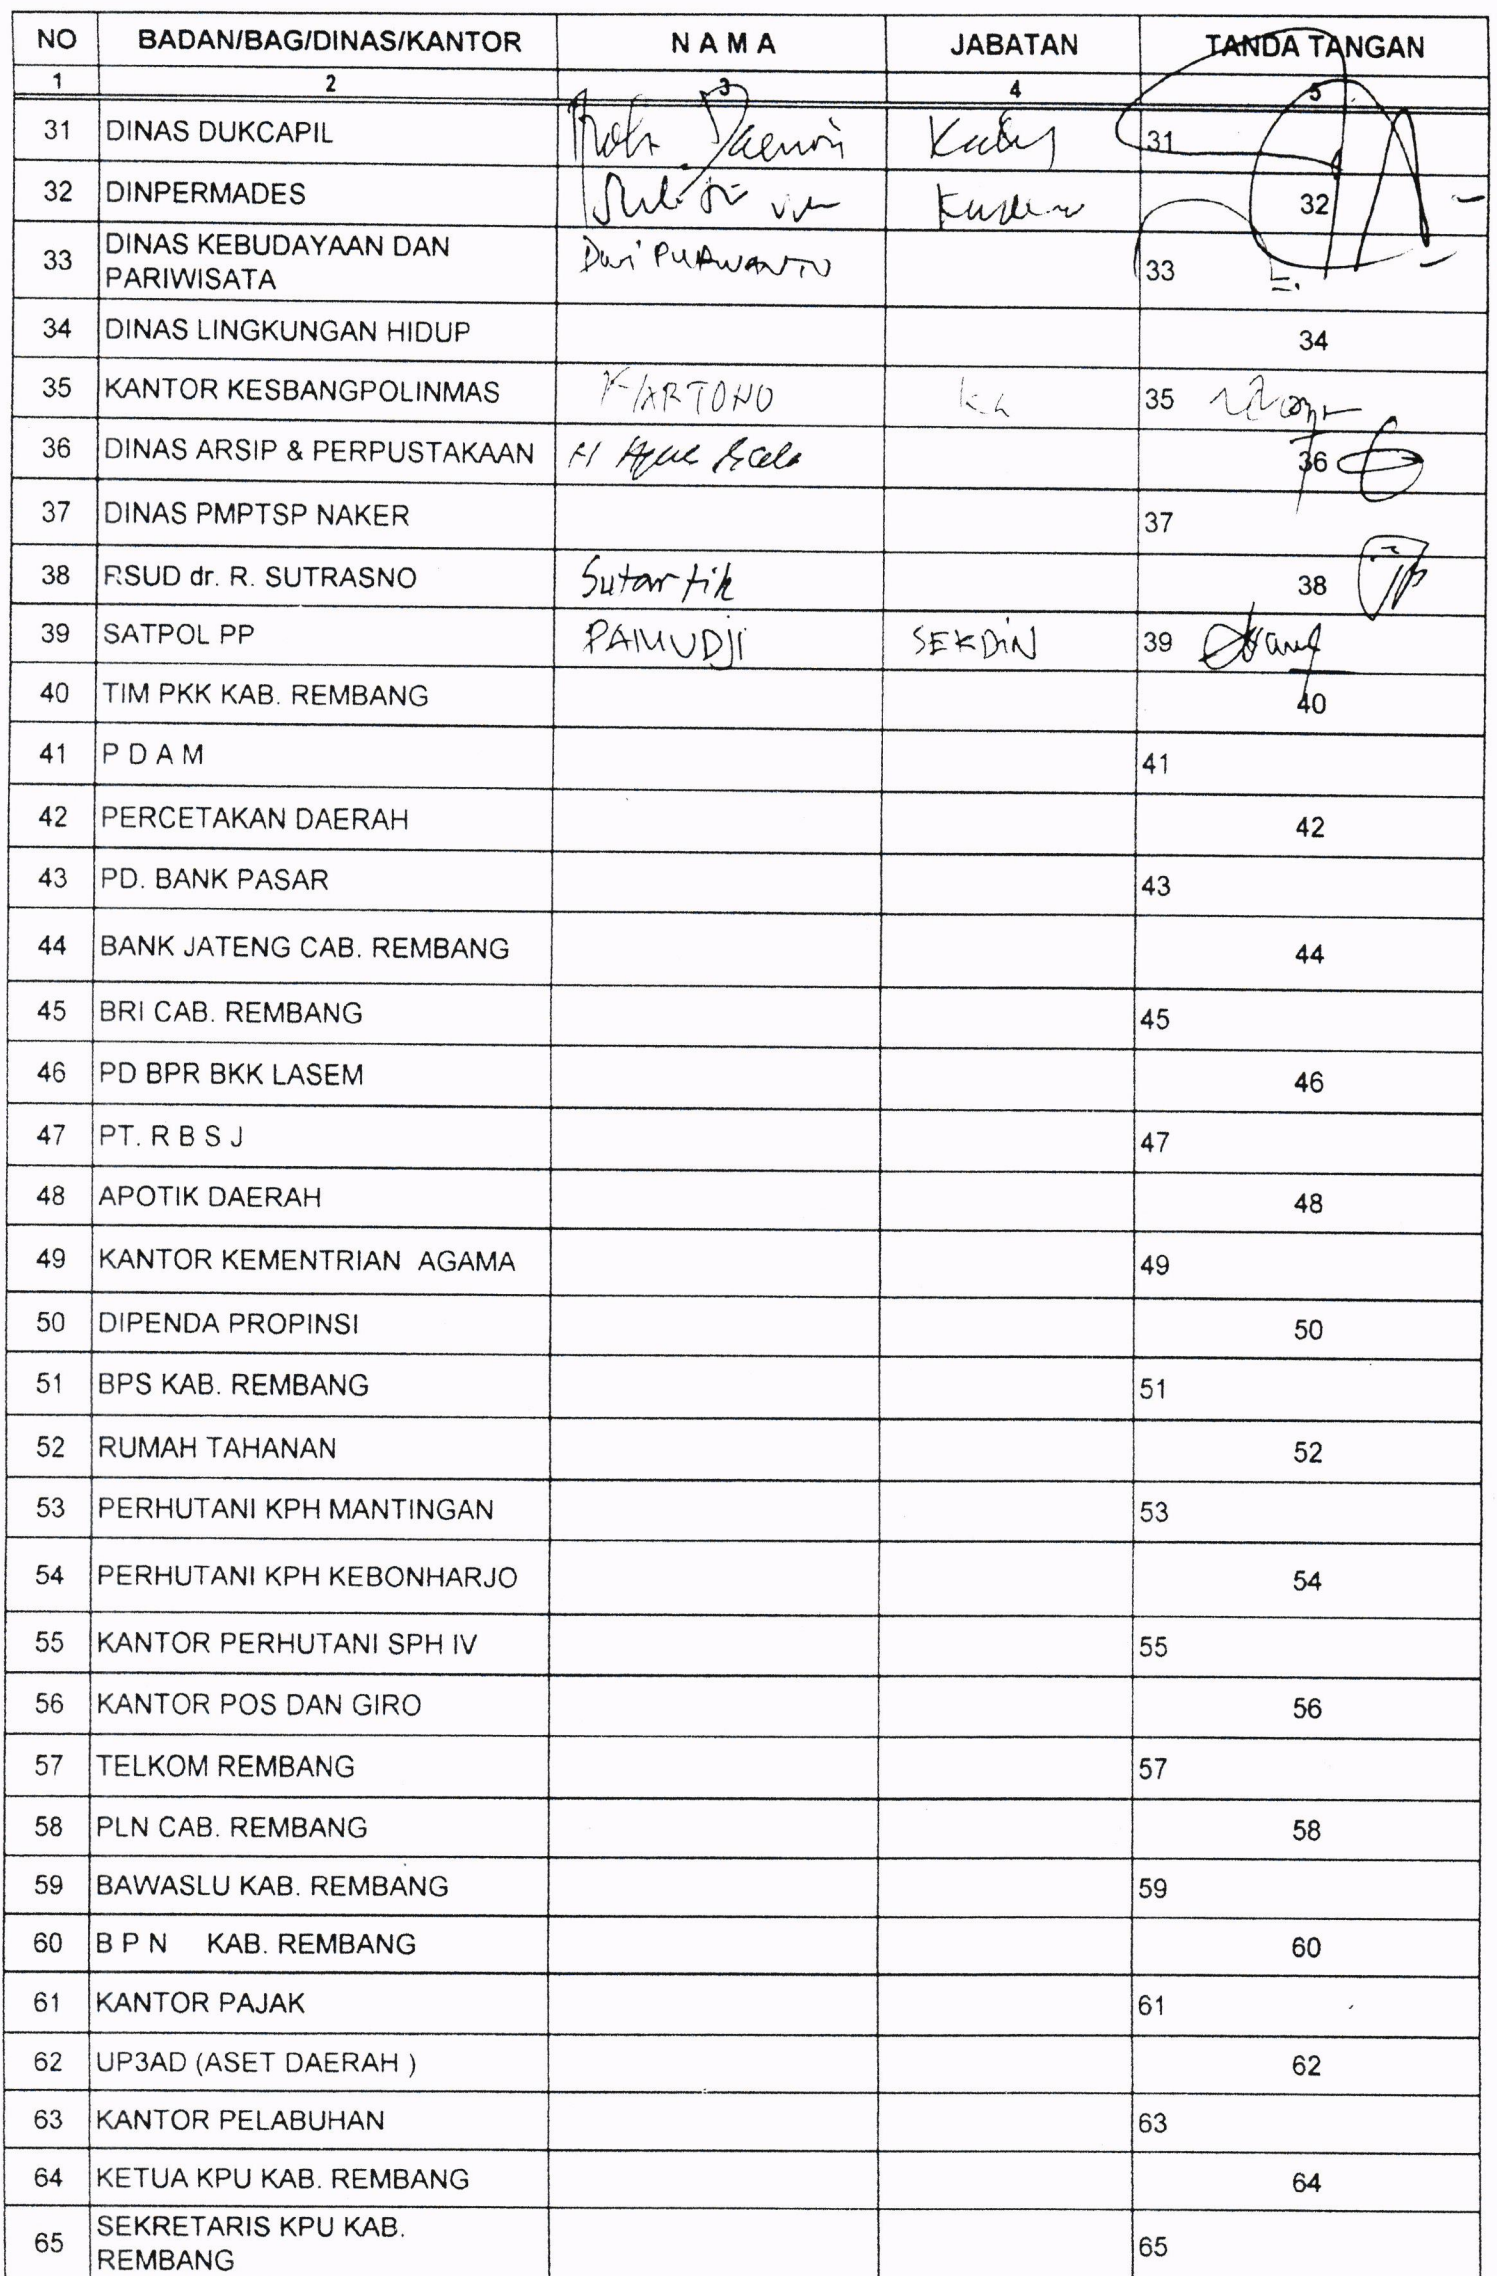 NO BADAN/BAG/DINAS/KANTOR N A M A JABATAN TANDA TANGAN
1 2 3 4 5
31 DINAS DUKCAPIL 31
32 DINPERMADES 32
DINAS KEBUDAYAAN DAN
33 PARIWISATA 33
34 DINAS LINGKUNGAN HIDUP 34
35 KANTOR KESBANGPOLINMAS KARTONO ka 35
36 DINAS ARSIP & PERPUSTAKAAN 36
37 DINAS PMPTSP NAKER 37
38 RSUD dr. R. SUTRASNO Sutartik 38
39 SATPOL PP PAMUDJI SEKDIN 39
40 TIM PKK KAB. REMBANG 40
41 P D A M 41
42 PERCETAKAN DAERAH 42
43 PD. BANK PASAR 43
44 BANK JATENG CAB. REMBANG 44
45 BRI CAB. REMBANG 45
46 PD BPR BKK LASEM 46
47 PT. R B S J 47
48 APOTIK DAERAH 48
49 KANTOR KEMENTRIAN AGAMA 49
50 DIPENDA PROPINSI 50
51 BPS KAB. REMBANG 51
52 RUMAH TAHANAN 52
53 PERHUTANI KPH MANTINGAN 53
54 PERHUTANI KPH KEBONHARJO 54
55 KANTOR PERHUTANI SPH IV 55
56 KANTOR POS DAN GIRO 56
57 TELKOM REMBANG 57
58 PLN CAB. REMBANG 58
59 BAWASLU KAB. REMBANG 59
60 B P N KAB. REMBANG 60
61 KANTOR PAJAK 61
62 UP3AD (ASET DAERAH ) 62
63 KANTOR PELABUHAN 63
64 KETUA KPU KAB. REMBANG 64
SEKRETARIS KPU KAB.
65 REMBANG 65